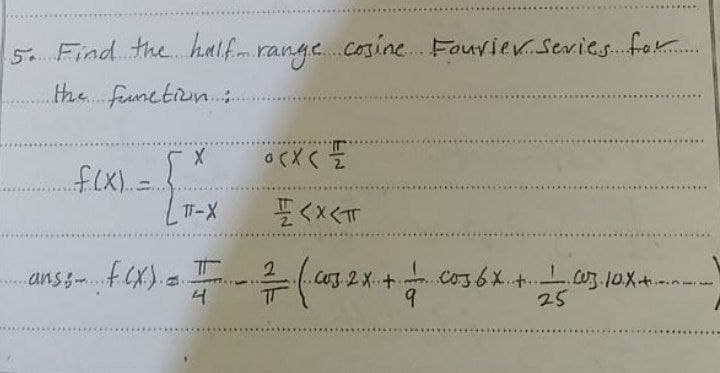 5. Find the half-range cosine Fourier Series for
the function :
f(x) = { x 0<x<π/2
π-x π/2<x<π
ans:- f(x) = π/4 - 2/π (cos 2x + 1/9 cos 6x + 1/25 cos 10x + ------)